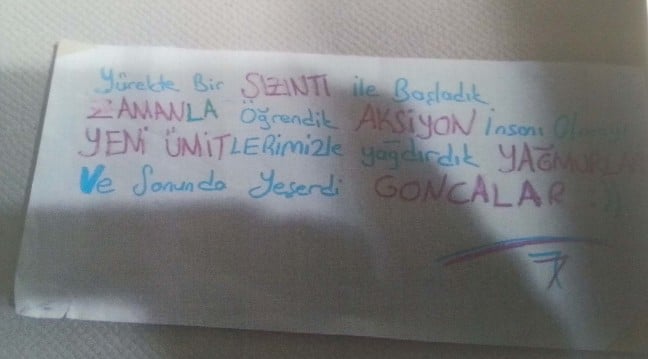 Yürekte Bir SIZINTI ile Başladık
ZAMANLA Öğrendik AKSİYON İnsanı
YENİ ÜMİTLERimizle yağdırdık YAĞMURLAR
Ve Sonunda Yeşerdi GONCALAR